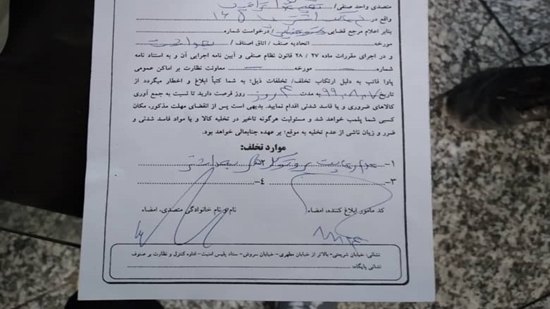 متصدی واحد صنفی/
واقع در
بنابر اعلام مرجع قضایی درخواست شماره
مورخه اتحادیه صنفی / اتاق اصناف / بهداشت
شماره مورخه معاونت نظارت بر اماکن عمومی
و در اجرای مقررات ماده ۲۷ / ۲۸ قانون نظام صنفی و آیین نامه اجرایی آن و به استناد نامه
پاوا فاتب به دلیل ارتکاب تخلف/ تخلفات ذیل: به شما کتباً ابلاغ و اخطار میگردد از
تاریخ ۹۹،۸،۷ به مدت ۳ روز فرصت دارید تا نسبت به جمع آوری
کالاهای ضروری و یا فاسد شدنی اقدام نمایید. بدیهی است پس از انقضای مهلت مذکور، مکان
کسبی شما پلمب خواهد شد و مسئولیت هرگونه تاخیر در تخلیه کالا و یا مواد فاسد شدنی و
ضرر و زیان ناشی از عدم تخلیه به موقع؛ بر عهده جنابعالی خواهد بود.
موارد تخلف:
۱- عدم رعایت پروتکل های بهداشتی
۳- ۴-
کد مامور ابلاغ کننده، امضاء نام و نام خانوادگی متصدی، امضاء
نشانی: خیابان شریعتی- بالاتر از خیابان مطهری- خیابان سروش- ستاد پلیس امنیت- اداره کنترل و نظارت بر صنوف
نشانی پایگاه: